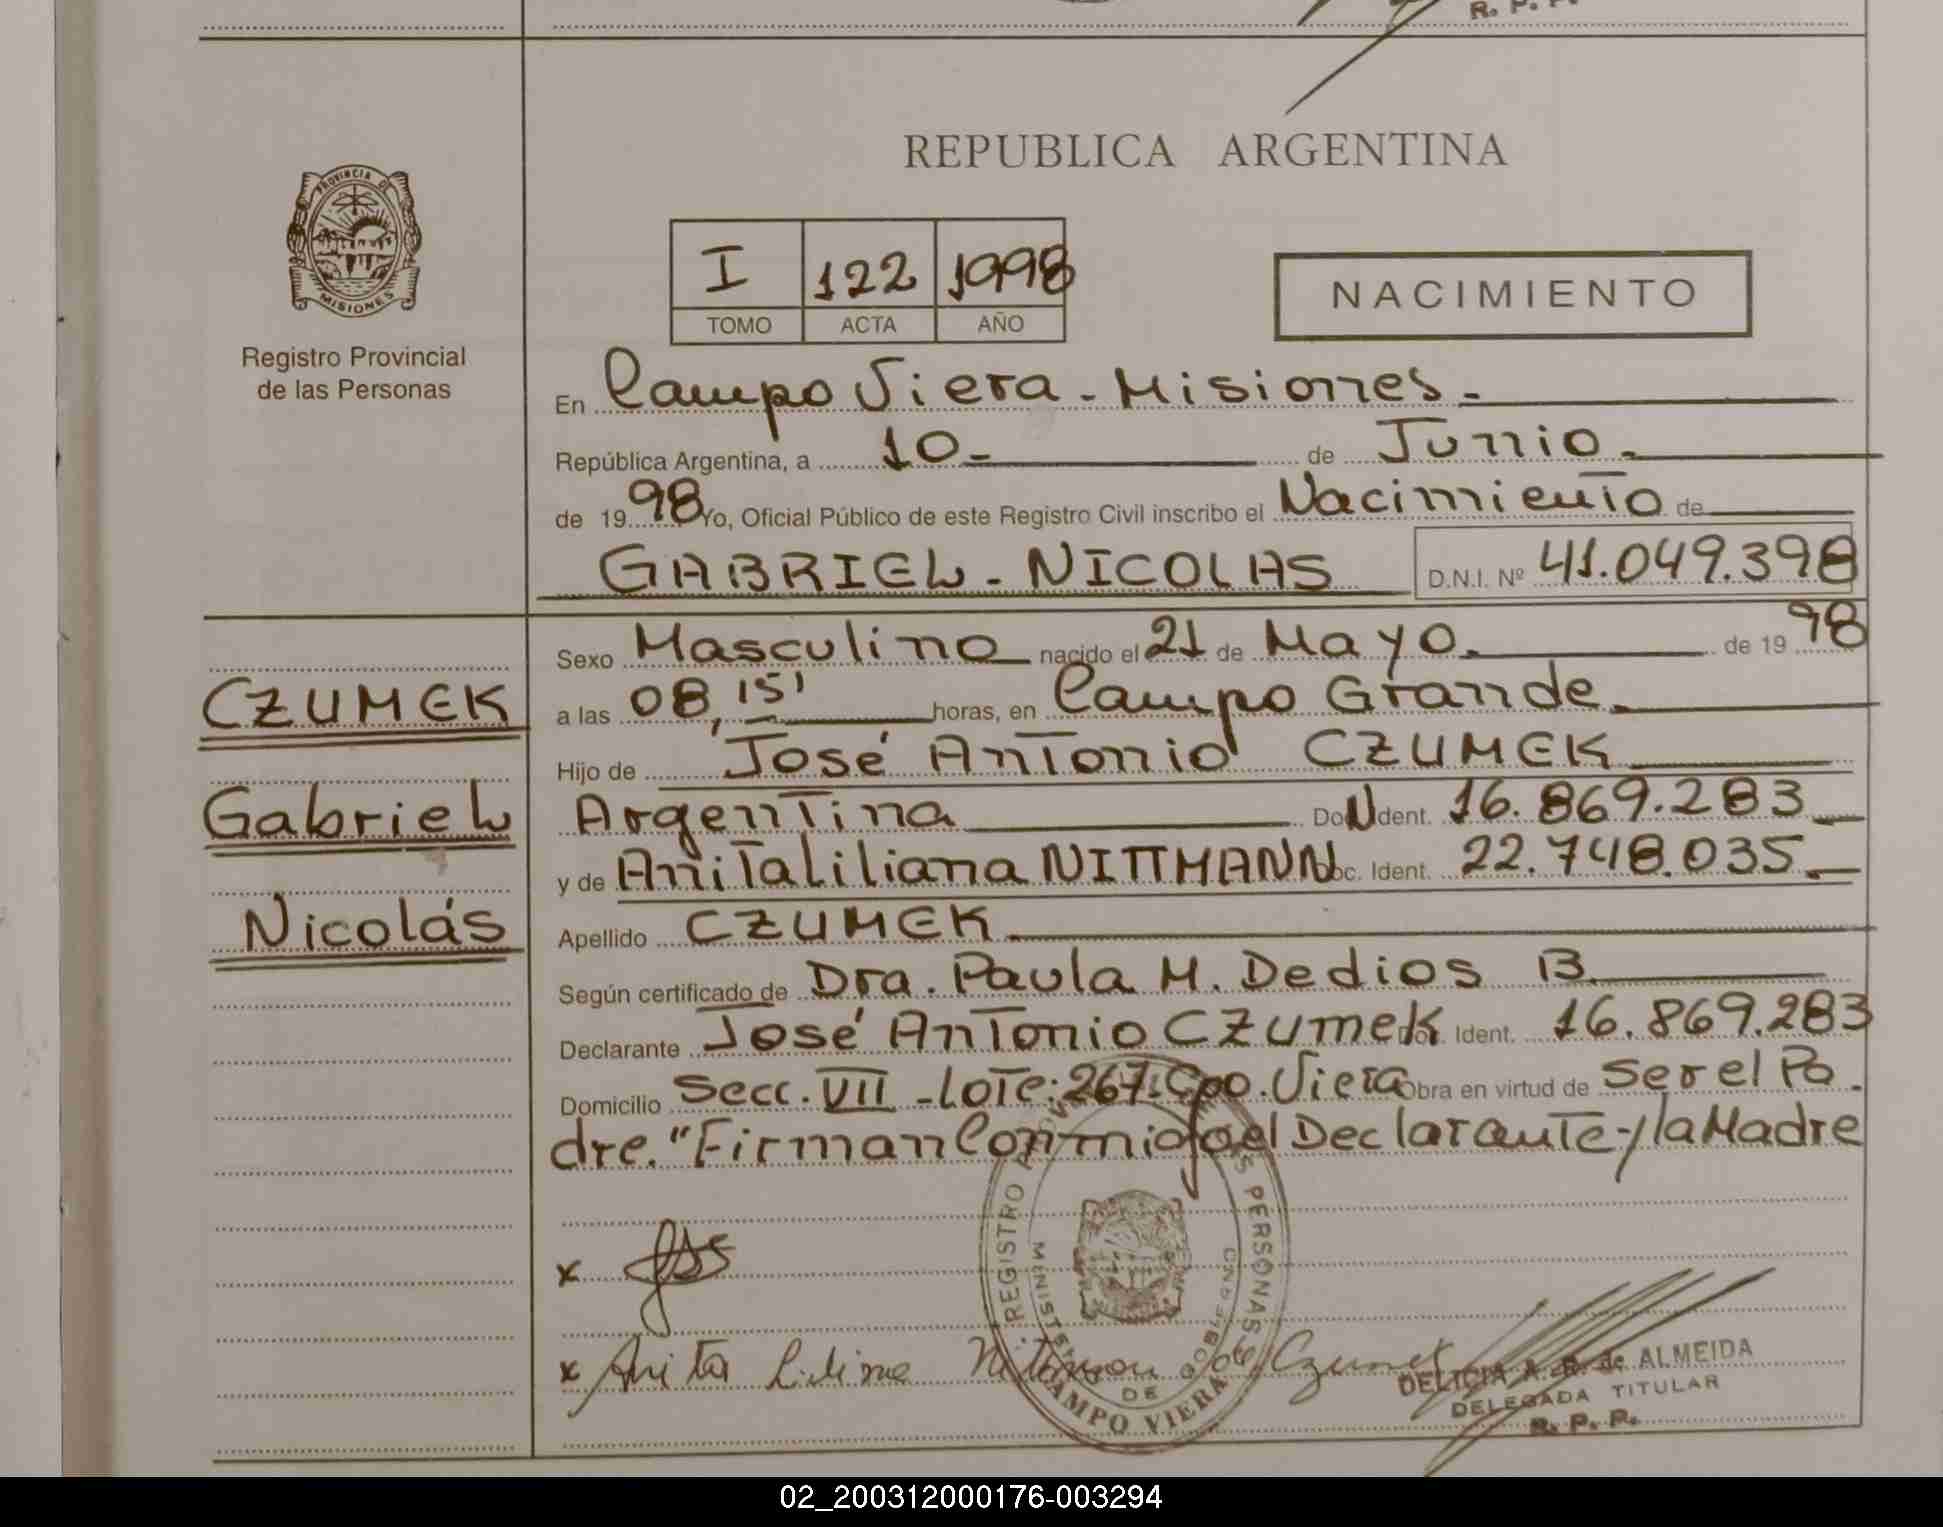 R. P. P.
REPUBLICA ARGENTINA
PROVINCIA DE
MISIONES
Registro Provincial
de las Personas
I 122 1998
TOMO ACTA AÑO
NACIMIENTO
En Campo Viera - Misiones -
República Argentina, a 10 - de Junio -
de 19 98 Yo, Oficial Público de este Registro Civil inscribo el Nacimiento de
GABRIEL - NICOLAS D.N.I. Nº 41.049.398
Sexo Masculino nacido el 21 de Mayo. de 19 98
CZUMEK
a las 08,15' horas, en Campo Grande.
Hijo de José Antonio CZUMEK
Gabriel
Argentina Doc. Ident. 16.869.283
y de Anita Liliana NITTMANN Doc. Ident. 22.748.035
Nicolás
Apellido CZUMEK
Según certificado de Dra. Paula M. Dedios B.
Declarante José Antonio CZUMEK Doc. Ident. 16.869.283
Domicilio Secc. VII - Lote: 267. Cpo. Viera Obra en virtud de Ser el Pa
dre. "Firman Conmigo el Declarante y la Madre
REGISTRO PERSONAS
MINISTERIO DE GOBIERNO
CAMPO VIERA
x
x Anita Liliana Nittmann de Czumek
DELICIA A. R. de ALMEIDA
DELEGADA TITULAR
R. P. P.
02_200312000176-003294